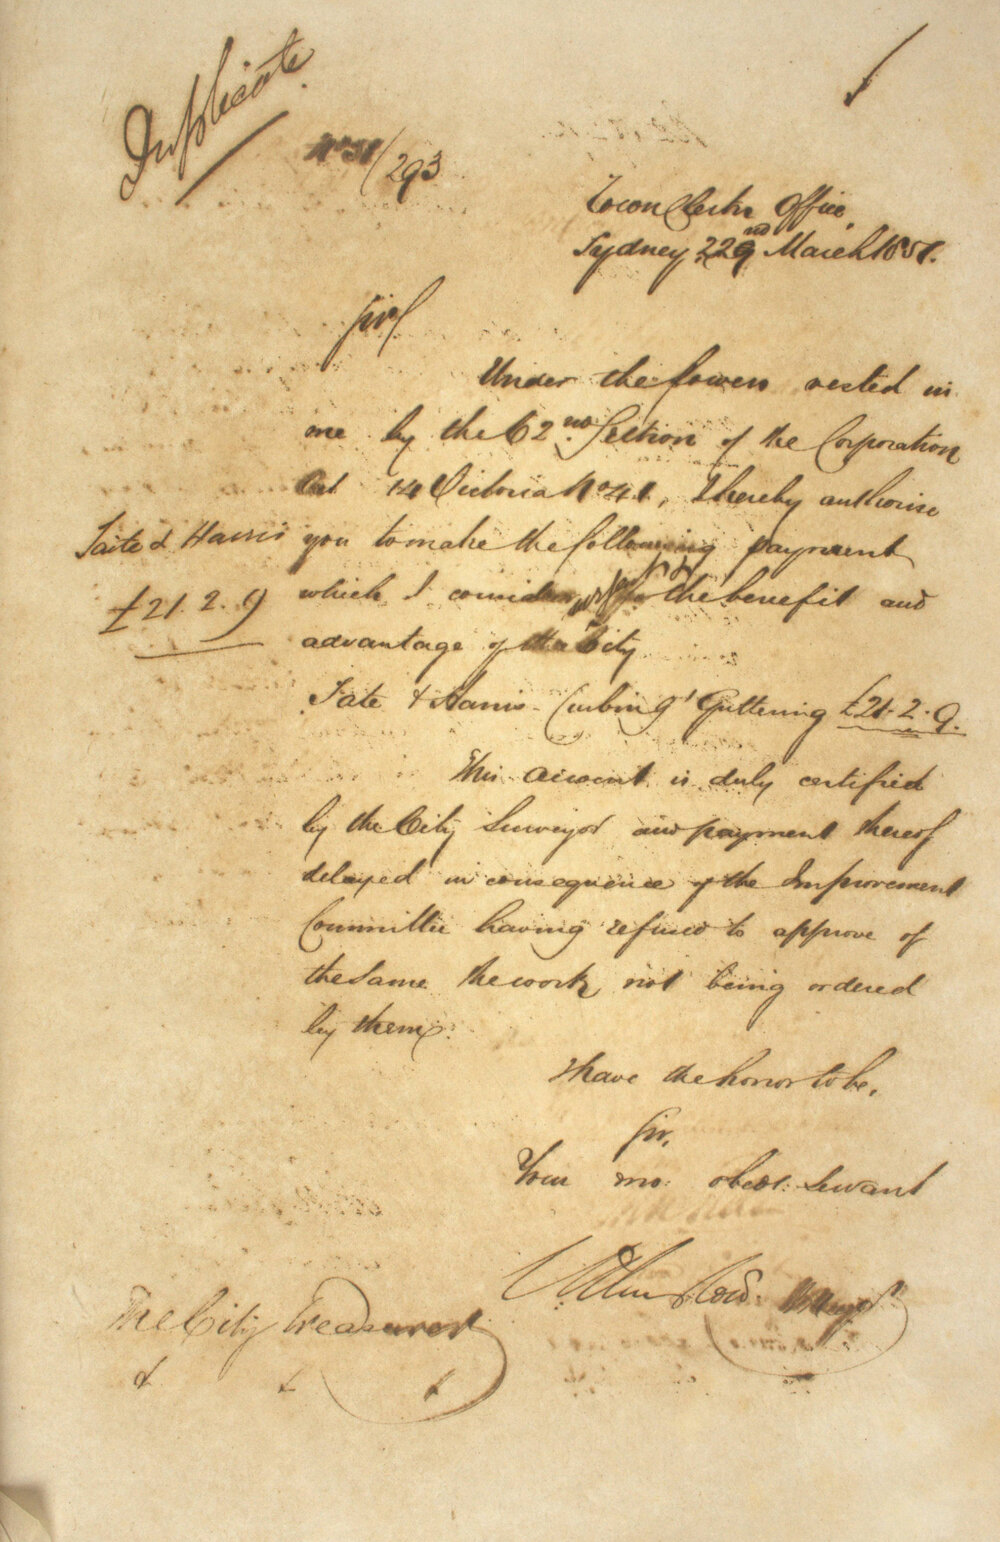 Duplicate.
No 51/293
Town Clerks Office,
Sydney 22nd March 1851.
Sir/
Under the powers vested in
me by the 62nd Section of the Corporation
Act 14 Victoria No 41, I hereby authorise
Taite & Harris you to make the following payment
£21.2.9 which I consider for the benefit and
advantage of the City
Tate & Harris - Curbing & Guttering £21.2.9.
This account is duly certified
by the City Surveyor and payment thereof
delayed in consequence of the Improvement
Committee having refused to approve of
the same the work not being ordered
by them.
I have the honor to be,
Sir,
Your mo: obedt: Servant
Mayor
The City Treasurer
& & &